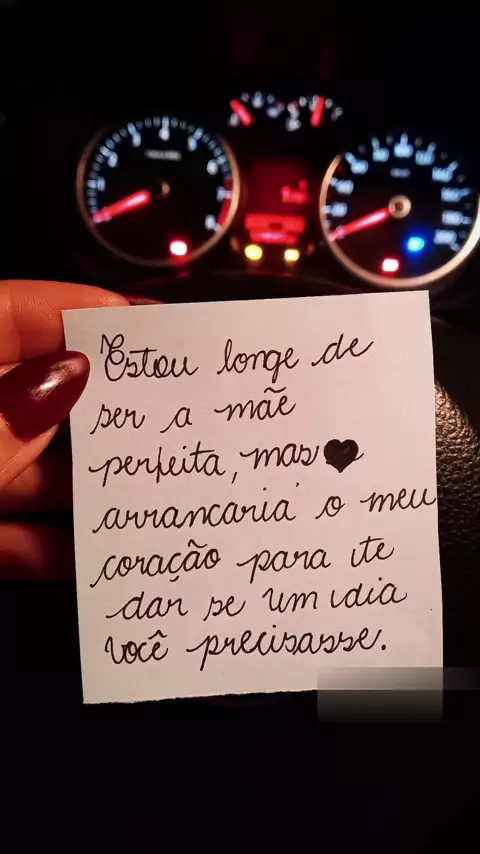 Estou longe de
ser a mãe
perfeita, mas ♥
arrancaria o meu
coração para te
dar se um dia
você precisasse.